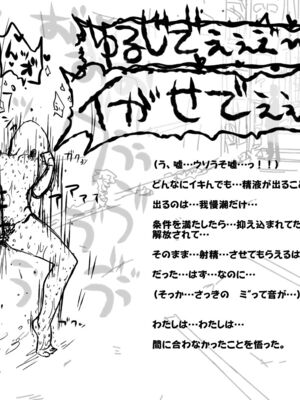 ゆるじてぇぇぇ～っ
イがせでぇぇ
ガクガク
アアアァ
（う、嘘…ウソうそ嘘…っ！！）
どんなにイキんでも…精液が出るこ
出るのは…我慢潮だけ…
条件を満たしたら…抑え込まれてた
解放されて…
そのまま…射精…させてもらえるは
だった…はず…なのに…
（そっか…さっきの ミ゛って音が…）
わたしは…わたしは…
間に合わなかったことを悟った。